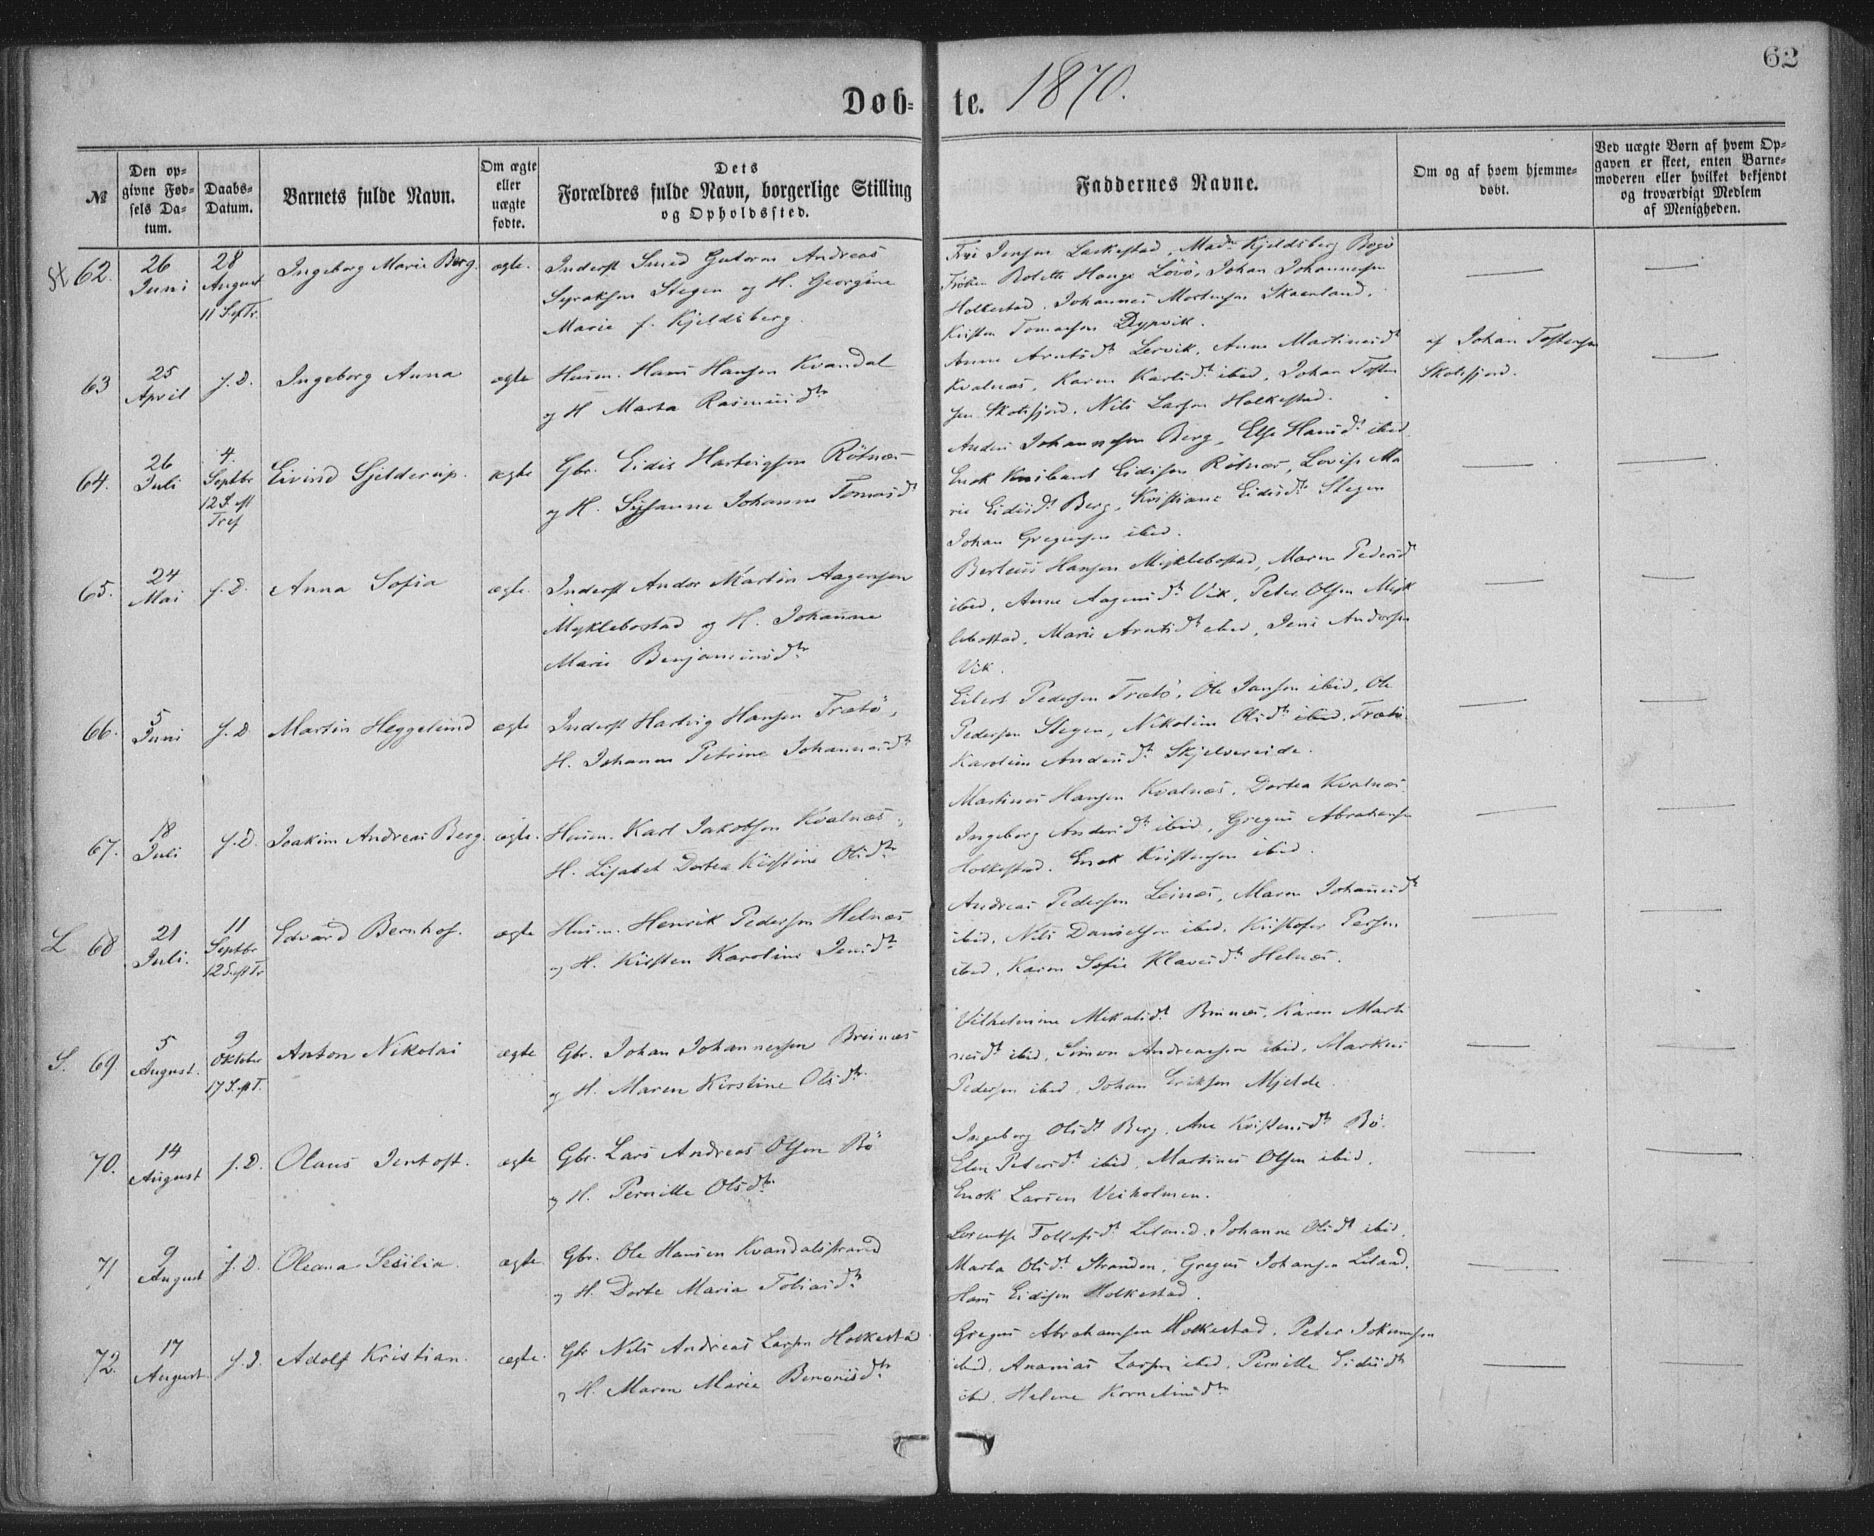 62
Døb-te. 1870.
№
Den op-
givne Fød-
sels Da-
tum.
Daabs-
Datum.
Barnets fulde Navn.
Om ægte
eller
uægte
fødte.
Dets
Forældres fulde Navn, borgerlige Stilling
og Opholdssted.
Faddernes Navne.
Om og af hvem hjemme-
døbt.
Ved uægte Børn af hvem Op-
gaven er skeet, enten Barne-
moderen eller hvilket bekjendt
og troværdigt Medlem
af Menigheden.
St 62.
26
Juni
28
August
11 S e Tr.
Ingeborg Marie Berg.
ægte.
Inderst Smed Gutorm Andreas
Syraksen Stegen og H. Georgine
Marie f. Kjeldsberg.
Fru Jensen Laskestad, Mad. Kjeldsberg Bogö
Fröken Bolette Hauge Lövö, Johan Johannesen
Holkestad, Johannes Mortensen Skaanland,
Kristen Tomassen Dypvik.
63
25
April
J. D.
Ingeborg Anna
ægte
Husm. Hans Hansen Kvandal
og H. Marta Rasmusdtr
Anne Arntsdtr Lervik, Anne Martinusdtr
Kvalnæs, Karen Karlsdtr ibid, Johan Tosten
sen Skotsfjord, Nils Larsen Holkestad.
af Johan Tostensen
Skotsfjord.
64.
26
Juli
4.
Septbr
12 S. eft
Tref
Eivind Gjelderup.
ægte
Gbr. Eidis Hartvigsen Rötnæs
og H. Sysanne Johanna Tomasdtr
Anders Johannesen Berg, Else Hansdtr ibid
Enok Eidissen Rötnæs, Lovise Ma
rie Eidisdtr Berg, Kristiane Eidisdtr Stegen
Johan Gregusen ibid.
65.
24
Mai
J. D.
Anna Sofia
ægte.
Inderst Andor Martin Aagensen
Myklebostad og H. Johanne
Marie Benjaminsdtr
Berteus Hansen Myklebostad, Maren Pedersdtr
ibid, Anne Aagensdtr Vik, Peter Olsen Myk
lebostad, Marie Arntsdtr ibid, Jens Andorsen
Vik.
66.
5
Juni
J. D
Martin Heggelund
ægte
Inderst Hartvig Hansen Trætö,
H. Johanna Petrine Johannesdtr
Eilert Pedersen Trætö, Ole Jansen ibid, Ole
Pedersen Stegen, Nikoline Olsdtr ibid, Trætö
Karoline Andersdtr Skjelvereide.
67.
18
Juli
J. D.
Joakim Andreas Berg.
ægte.
Husm. Karl Jakobsen Kvalnæs,
H. Lisabet Dortea Kirstine Olsdtr
Martinus Hansen Kvalnæs, Dortea Kvalnæs
Ingeborg Andersdtr ibid, Gregus Abrahamsen
Holkestad, Enok Kristensen ibid.
L. 68
21
Juli.
11
Septbr
12 S. eft Tr
Edvard Bernhof.
ægte
Husm. Henrik Pedersen Helnæs
og H. Kirsten Karoline Jensdtr
Andreas Pedersen Leines, Maren Johansdtr
ibid, Nils Danielsen ibid, Kristofer Persen
ibid, Karen Sofie Klausdtr Helnæs.
S. 69
5
August.
9
Oktbr
17 S. eft T.
Anton Nikolai
ægte
Gbr. Johan Johannessen Breinæs
og H. Maren Kirstine Olsdtr.
Vilhelmine Mekalsdtr Brinæs, Karen Marti
nusdtr ibid, Simon Andreassen ibid, Markus
Pedersen ibid, Johan Eriksen Mjelde.
70.
14
August
J. D.
Olaus Jentoft.
ægte
Gbr. Lars Andreas Olsen Bö
og H. Pernille Olsdtr
Ingeborg Olsdtr Berg, Ane Kristensdtr Bö.
Elen Petersdtr ibid, Martinus Olsen ibid,
Enok Larsen Veiholmen.
71
9
August
J. D.
Oleana Sesilia.
ægte.
Gbr. Ole Hansen Kvandalstrand
og H. Dorte Maria Tobiasdtr
Lorentse Tollefsdtr Leland, Johanne Olsdtr ibid.
Marta Olsdtr Stranden, Gregus Johansen Leland,
Hans Eidissen Holkestad.
72.
17
August.
J. D
Adolf Kristian.
ægte.
Gbr Nils Andreas Larsen Holkestad
og H. Maren Marie Benonisdtr
Gregus Abrahamsen Holkestad, Peter Jokumsen
ibid, Ananias Larsen ibid, Pernille Eidisdtr
ibid, Helene Korneliusdtr